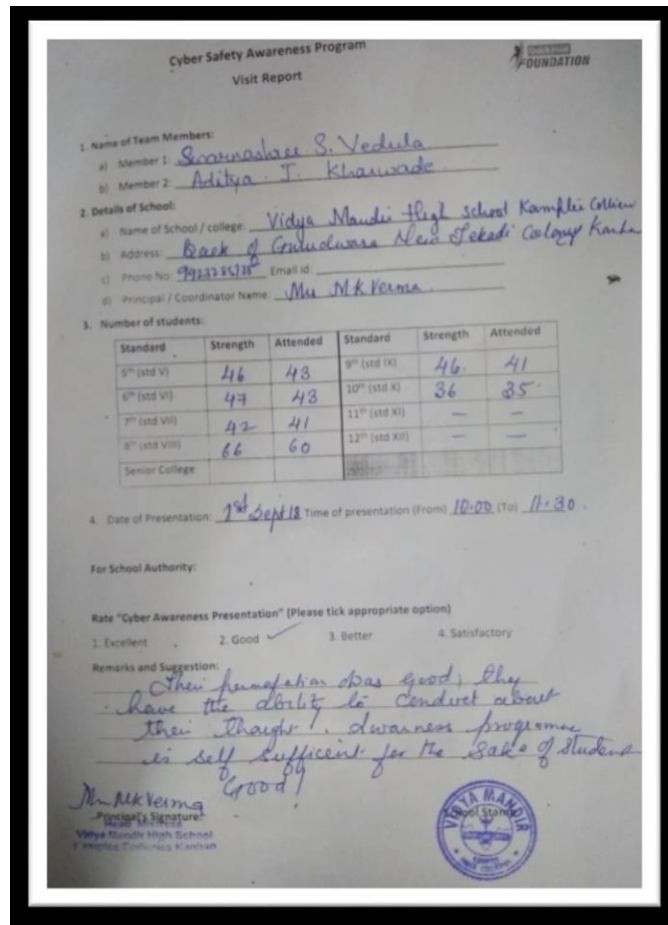 Cyber Safety Awareness Program
FOUNDATION
Visit Report
1. Name of Team Members:
a) Member 1: Swarnashree S. Vedula
b) Member 2: Aditya J. Kharwade
2. Details of School:
a) Name of School / college: Vidya Mandir High School Kamptee
b) Address: Back of Gurudwara New Tekadi Colony Kanhan
c) Phone No: Email id:
d) Principal / Coordinator Name: Mrs M K Verma
3. Number of students:
Standard Strength Attended Standard Strength Attended
5th (std V) 46 43 9th (std IX) 46. 41
6th (std VI) 47 43 10th (std X) 36 35
7th (std VII) 42 41 11th (std XI) — —
8th (std VIII) 66 60 12th (std XII) — —
Senior College
4. Date of Presentation: 1st Sept 18 Time of presentation (From) 10.00 (To) 11.30.
For School Authority:
Rate "Cyber Awareness Presentation" (Please tick appropriate option)
1. Excellent 2. Good ✓ 3. Better 4. Satisfactory
Remarks and Suggestion:
Their was good; they
have the ability to conduct about
their thought! Awarness programme
is self sufficent for the sake of Student
Good!
Mrs M K Verma
Principal's Signature: School Stamp
Head Mistress
Vidya Mandir High School
Kamptee Collieries Kanhan
VIDYA MANDIR